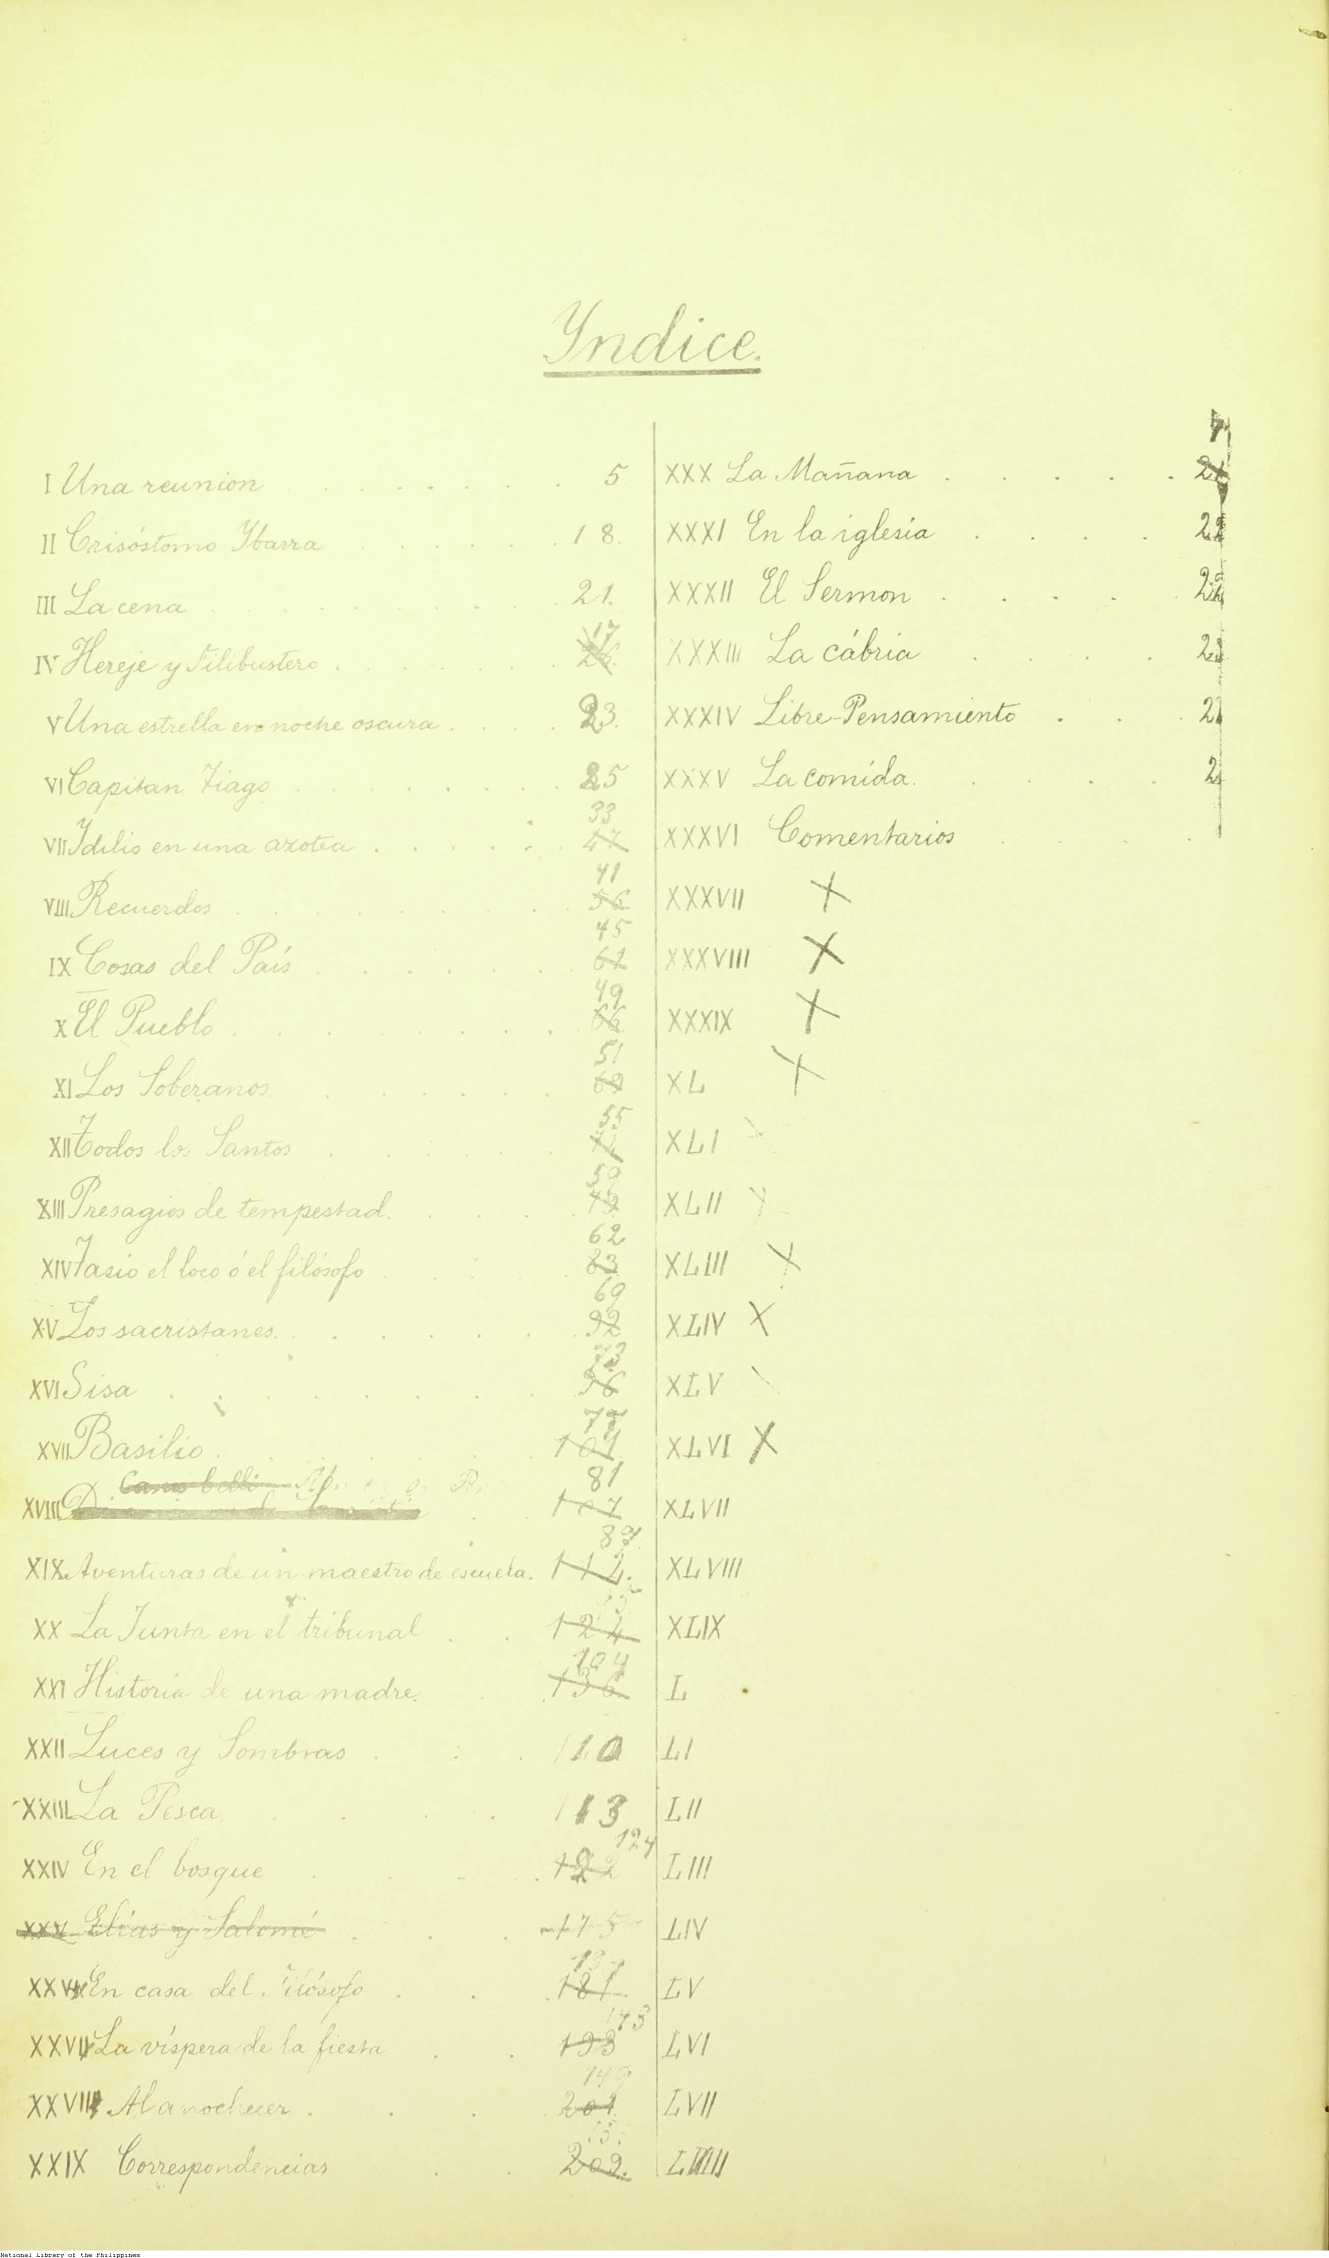 Yndice.
I Una reunion 5
II Crisóstomo Ybarra 18.
III La cena 21.
17
IV Hereje y Filibustero 26.
V Una estrella en noche oscura 23.
VI Capitan Tiago 25
33
VII Idilio en una azotea 47
41
VIII Recuerdos 56
45
IX Cosas del País 61
49
X El Pueblo 66
51
XI Los Soberanos 69
55
XII Todos los Santos
59
XIII Presagios de tempestad.
62
XIV Tasio el loco ó el filósofo 83
69
XV Los sacristanes. 92
73
XVI Sisa 96
77
XVII Basilio 101
81
XVIII 107
87
XIX Aventuras de un maestro de escuela. 112.
XX La Junta en el tribunal 124
104
XXI Historia de una madre. 136
XXII Luces y Sombras 110
XXIII La Pesca 113
124
XXIV En el bosque 122
XXV Elías y Salomé 175
XXV En casa del Filósofo 181
143
XXVI La víspera de la fiesta 193
149
XXVIII Al anochecer 201
XXIX Correspondencias 202.
XXX La Mañana
XXXI En la iglesia
XXXII El Sermon
XXXIII La cábria
XXXIV Libre-Pensamiento
XXXV La comida.
XXXVI Comentarios
XXXVII X
XXXVIII X
XXXIX X
XL X
XLI X
XLII X
XLIII X
XLIV X
XLV
XLVI X
XLVII
XLVIII
XLIX
L
LI
LII
LIII
LIV
LV
LVI
LVII
LVIII
National Library of the Philippines